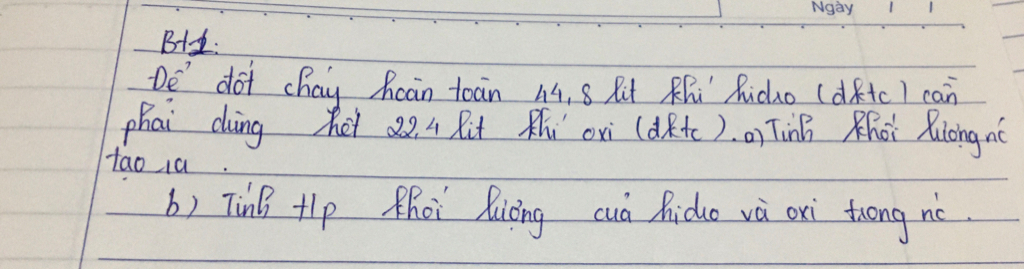 Ngày / /
Bt1:
Để đốt cháy hoàn toàn 44,8 lit khí hidro (đktc) cần
phải dùng hết 22,4 lit khí oxi (đktc). a) Tính khối lượng nc
tạo ra .
b) Tính tlp khối lượng của hidro và oxi trong nc .